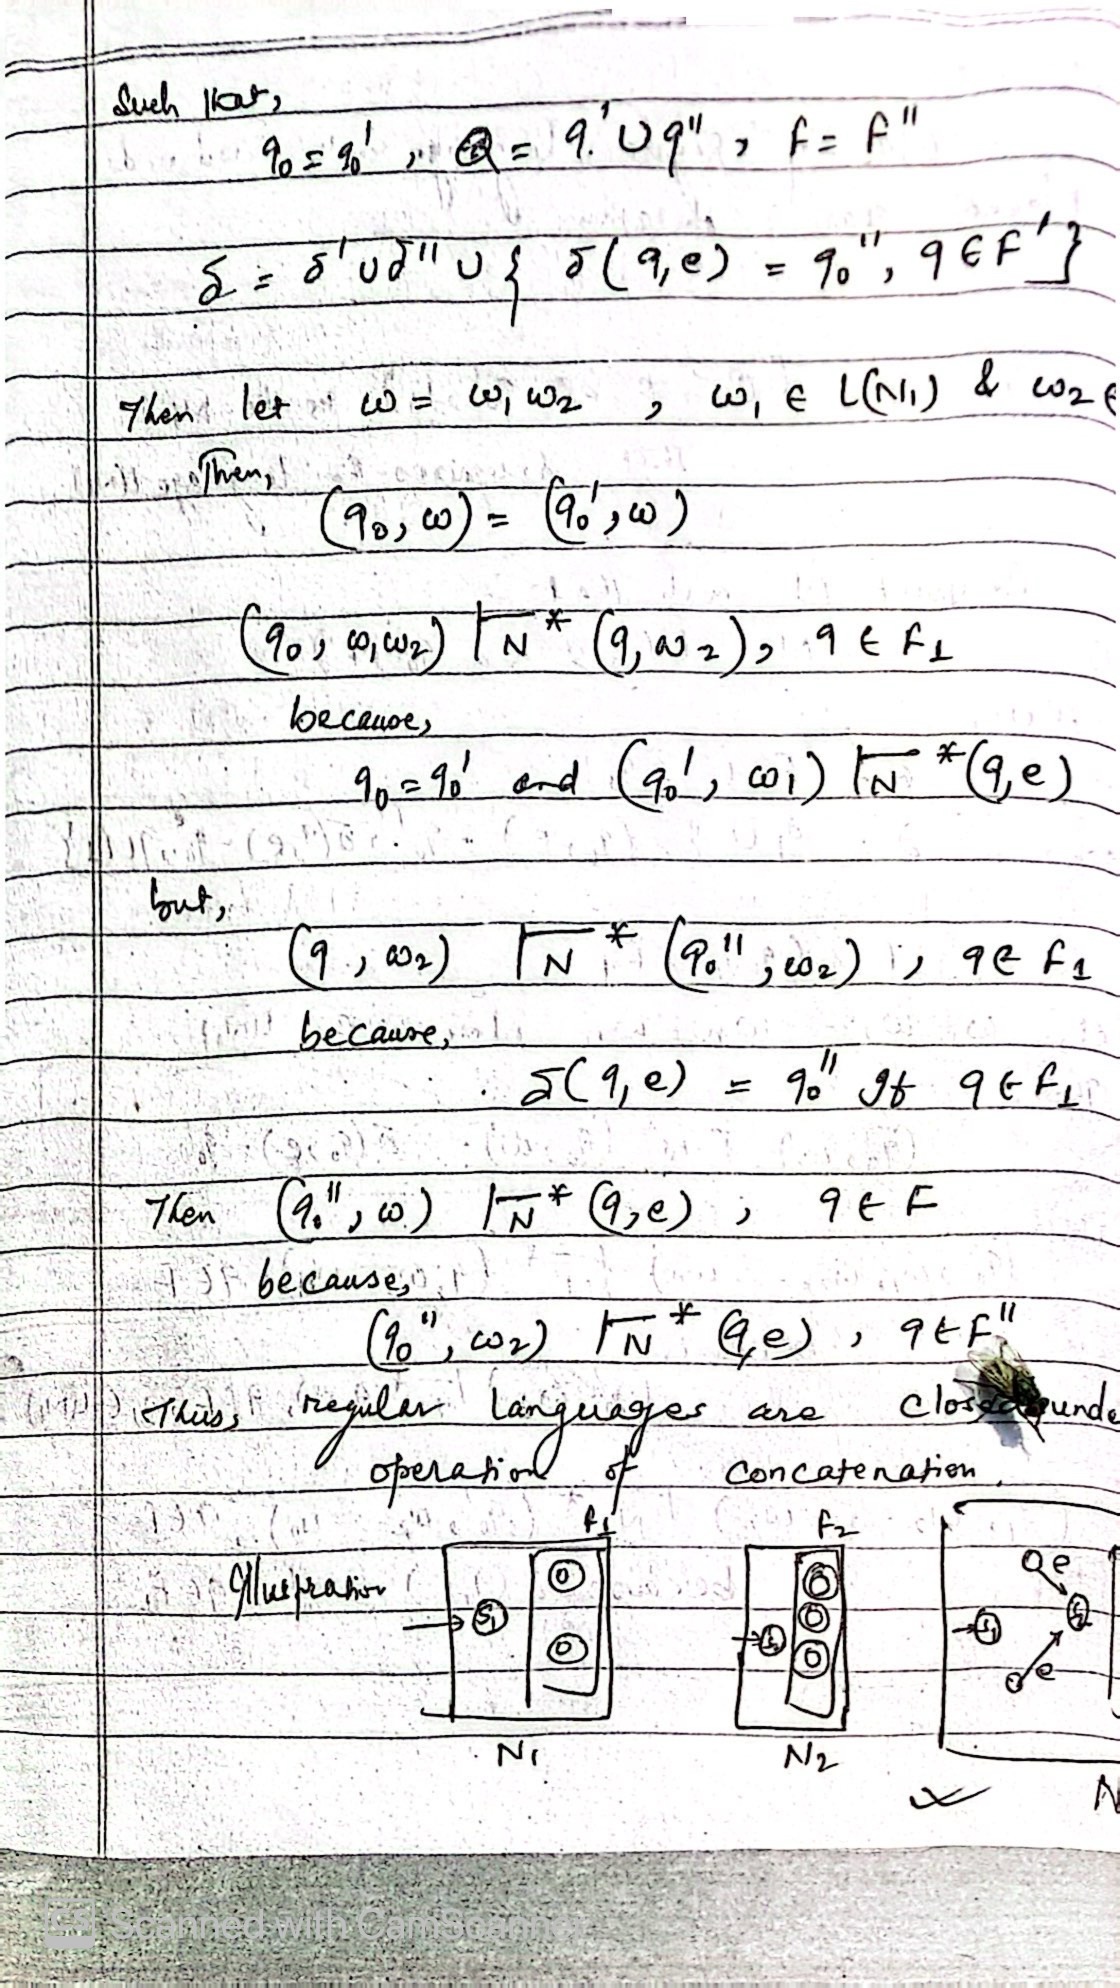 Such that,
q₀ = q₀' , Q = q' ∪ q'' , F = F''
δ = δ' ∪ δ'' ∪ { δ(q,e) = q₀'', q ∈ F' }
Then let ω = ω₁ω₂ , ω₁ ∈ L(N₁) & ω₂ ∈
Then,
(q₀, ω) = (q₀', ω)
(q₀, ω₁ω₂) ⊢N* (q, ω₂), q ∈ F₁
because,
q₀ = q₀' and (q₀', ω₁) ⊢N* (q,e)
but,
(q, ω₂) ⊢N* (q₀'', ω₂), q ∈ F₁
because,
δ(q,e) = q₀'' If q ∈ F₁
Then (q₀'', ω) ⊢N* (q,e) , q ∈ F
because,
(q₀'', ω₂) ⊢N* (q,e) , q ∈ F''
Thus, regular languages are closed unde
operation of concatenation.
F₁ F₂
Illustration
S₁ S₂ S₁ e S₂ e
N₁ N₂ N
CS Scanned with CamScanner